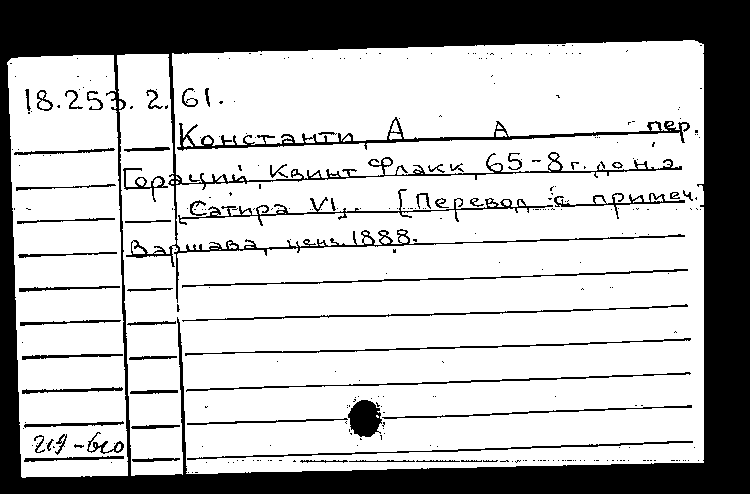 18.253.2.61.
Константи, А А пер.
Гораций, Квинт Флакк, 65-8 г. до н. э.
[Сатира VI]. [Перевод с примеч.]
Варшава, ценз. 1888.